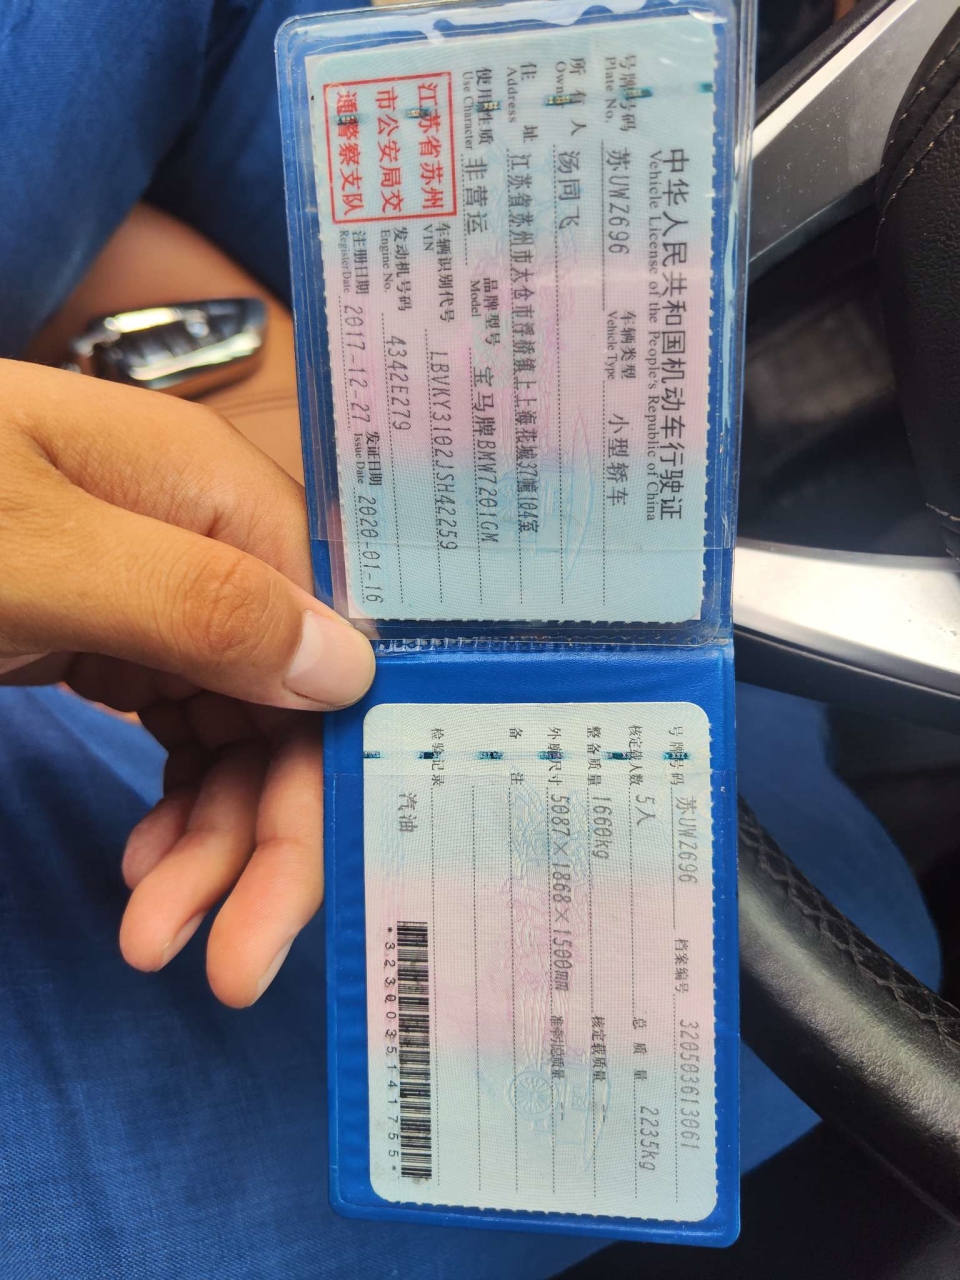 中华人民共和国机动车行驶证
Vehicle License of the People's Republic of China
号牌号码 苏UWZ696 车辆类型 小型轿车
Plate No. Vehicle Type
所有人 汤同飞
Owner
住址 江苏省苏州市太仓市浮桥镇上上海花城37幢104室
Address
使用性质 非营运 品牌型号 宝马牌BMW7201GM
Use Character Model
江苏省苏州
市公安局交
通警察支队
车辆识别代号 LBVKY3102JSH42259
VIN
发动机号码 4342E279
Engine No.
注册日期 2017-12-27 发证日期 2020-01-16
Register Date Issue Date
号牌号码 苏UWZ696 档案编号 320503613061
核定载人数 5人 总质量 2235kg
整备质量 1660kg 核定载质量 --
外廓尺寸 5087×1868×1500mm 准牵引总质量 --
备注
检验记录
汽油
*3230035141755*